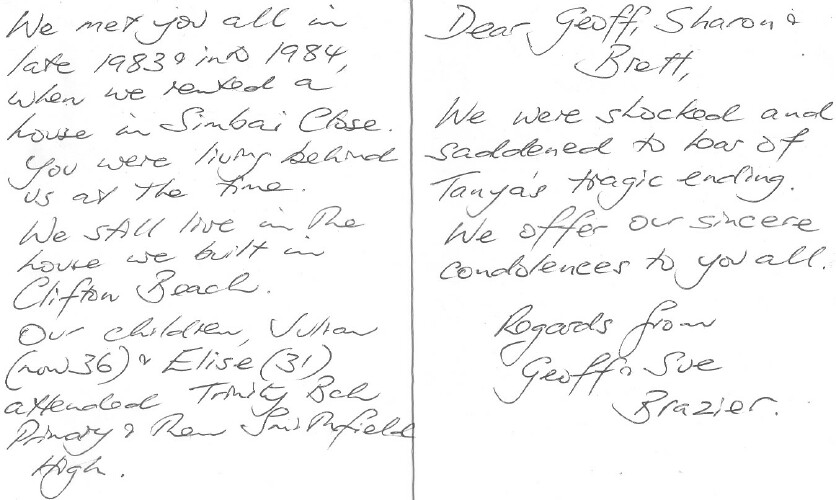 We met you all in
late 1983 & into 1984,
when we rented a
house in Simbai Close.
You were living behind
us at the time.
We still live in the
house we built in
Clifton Beach.
Our children, Julian
(now 36) & Elise (31)
attended Trinity Bch
Primary & then Smithfield
High.
Dear Geoff, Sharon &
Brett,
We were shocked and
saddened to hear of
Tanya's tragic ending.
We offer our sincere
condolences to you all.
Regards from
Geoff & Sue
Brazier.